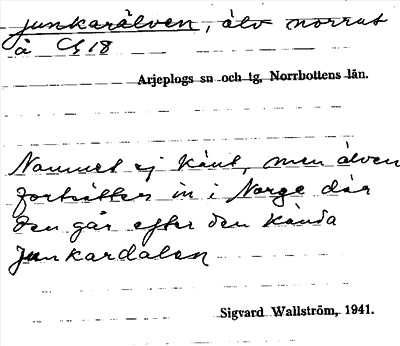 Junkarälven, älv norrut
å Cg 18
Arjeplogs sn och tg, Norrbottens län.
Namnet ej känt, men älven
fortsätter in i Norge där
den går efter den kända
Junkardalen
Sigvard Wallström, 1941.